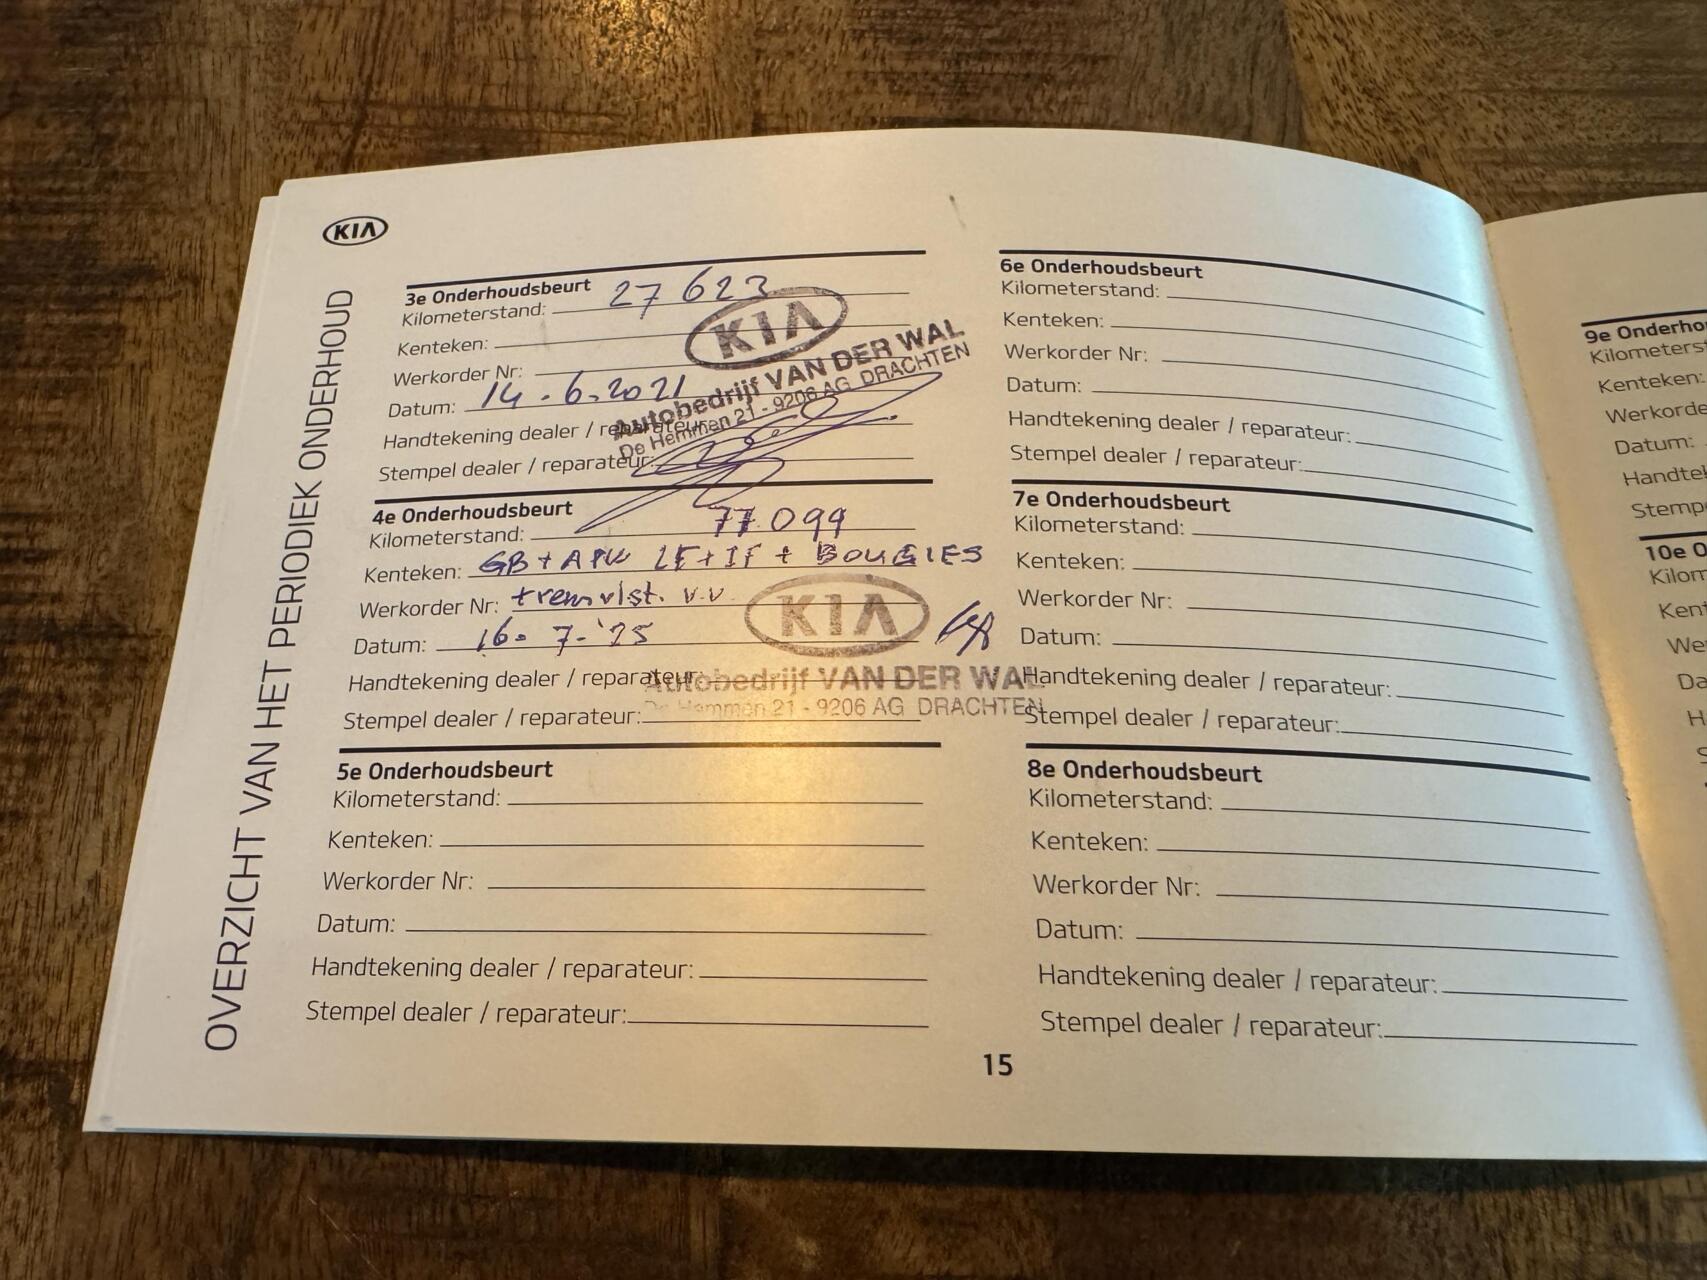 KIA
OVERZICHT VAN HET PERIODIEK ONDERHOUD
3e Onderhoudsbeurt
Kilometerstand: 27 623
Kenteken:
Werkorder Nr:
Datum: 14-6-2021
Handtekening dealer / reparateur:
Stempel dealer / reparateur:
KIA
Autobedrijf VAN DER WAL
De Hemmen 21 - 9206 AG DRACHTEN
4e Onderhoudsbeurt
Kilometerstand: 77.099
Kenteken: GB + APK LF + IF + BOUGIES
Werkorder Nr: remvlst. v.v
Datum: 16-7-'25
Handtekening dealer / reparateur:
Stempel dealer / reparateur:
KIA
Autobedrijf VAN DER WAL
De Hemmen 21 - 9206 AG DRACHTEN
5e Onderhoudsbeurt
Kilometerstand:
Kenteken:
Werkorder Nr:
Datum:
Handtekening dealer / reparateur:
Stempel dealer / reparateur:
6e Onderhoudsbeurt
Kilometerstand:
Kenteken:
Werkorder Nr:
Datum:
Handtekening dealer / reparateur:
Stempel dealer / reparateur:
7e Onderhoudsbeurt
Kilometerstand:
Kenteken:
Werkorder Nr:
Datum:
Handtekening dealer / reparateur:
Stempel dealer / reparateur:
8e Onderhoudsbeurt
Kilometerstand:
Kenteken:
Werkorder Nr:
Datum:
Handtekening dealer / reparateur:
Stempel dealer / reparateur:
15
9e Onderho
Kilometerst
Kenteken:
Werkorde
Datum:
Handtek
Stemp
10e O
Kilom
Kent
We
Da
H
S